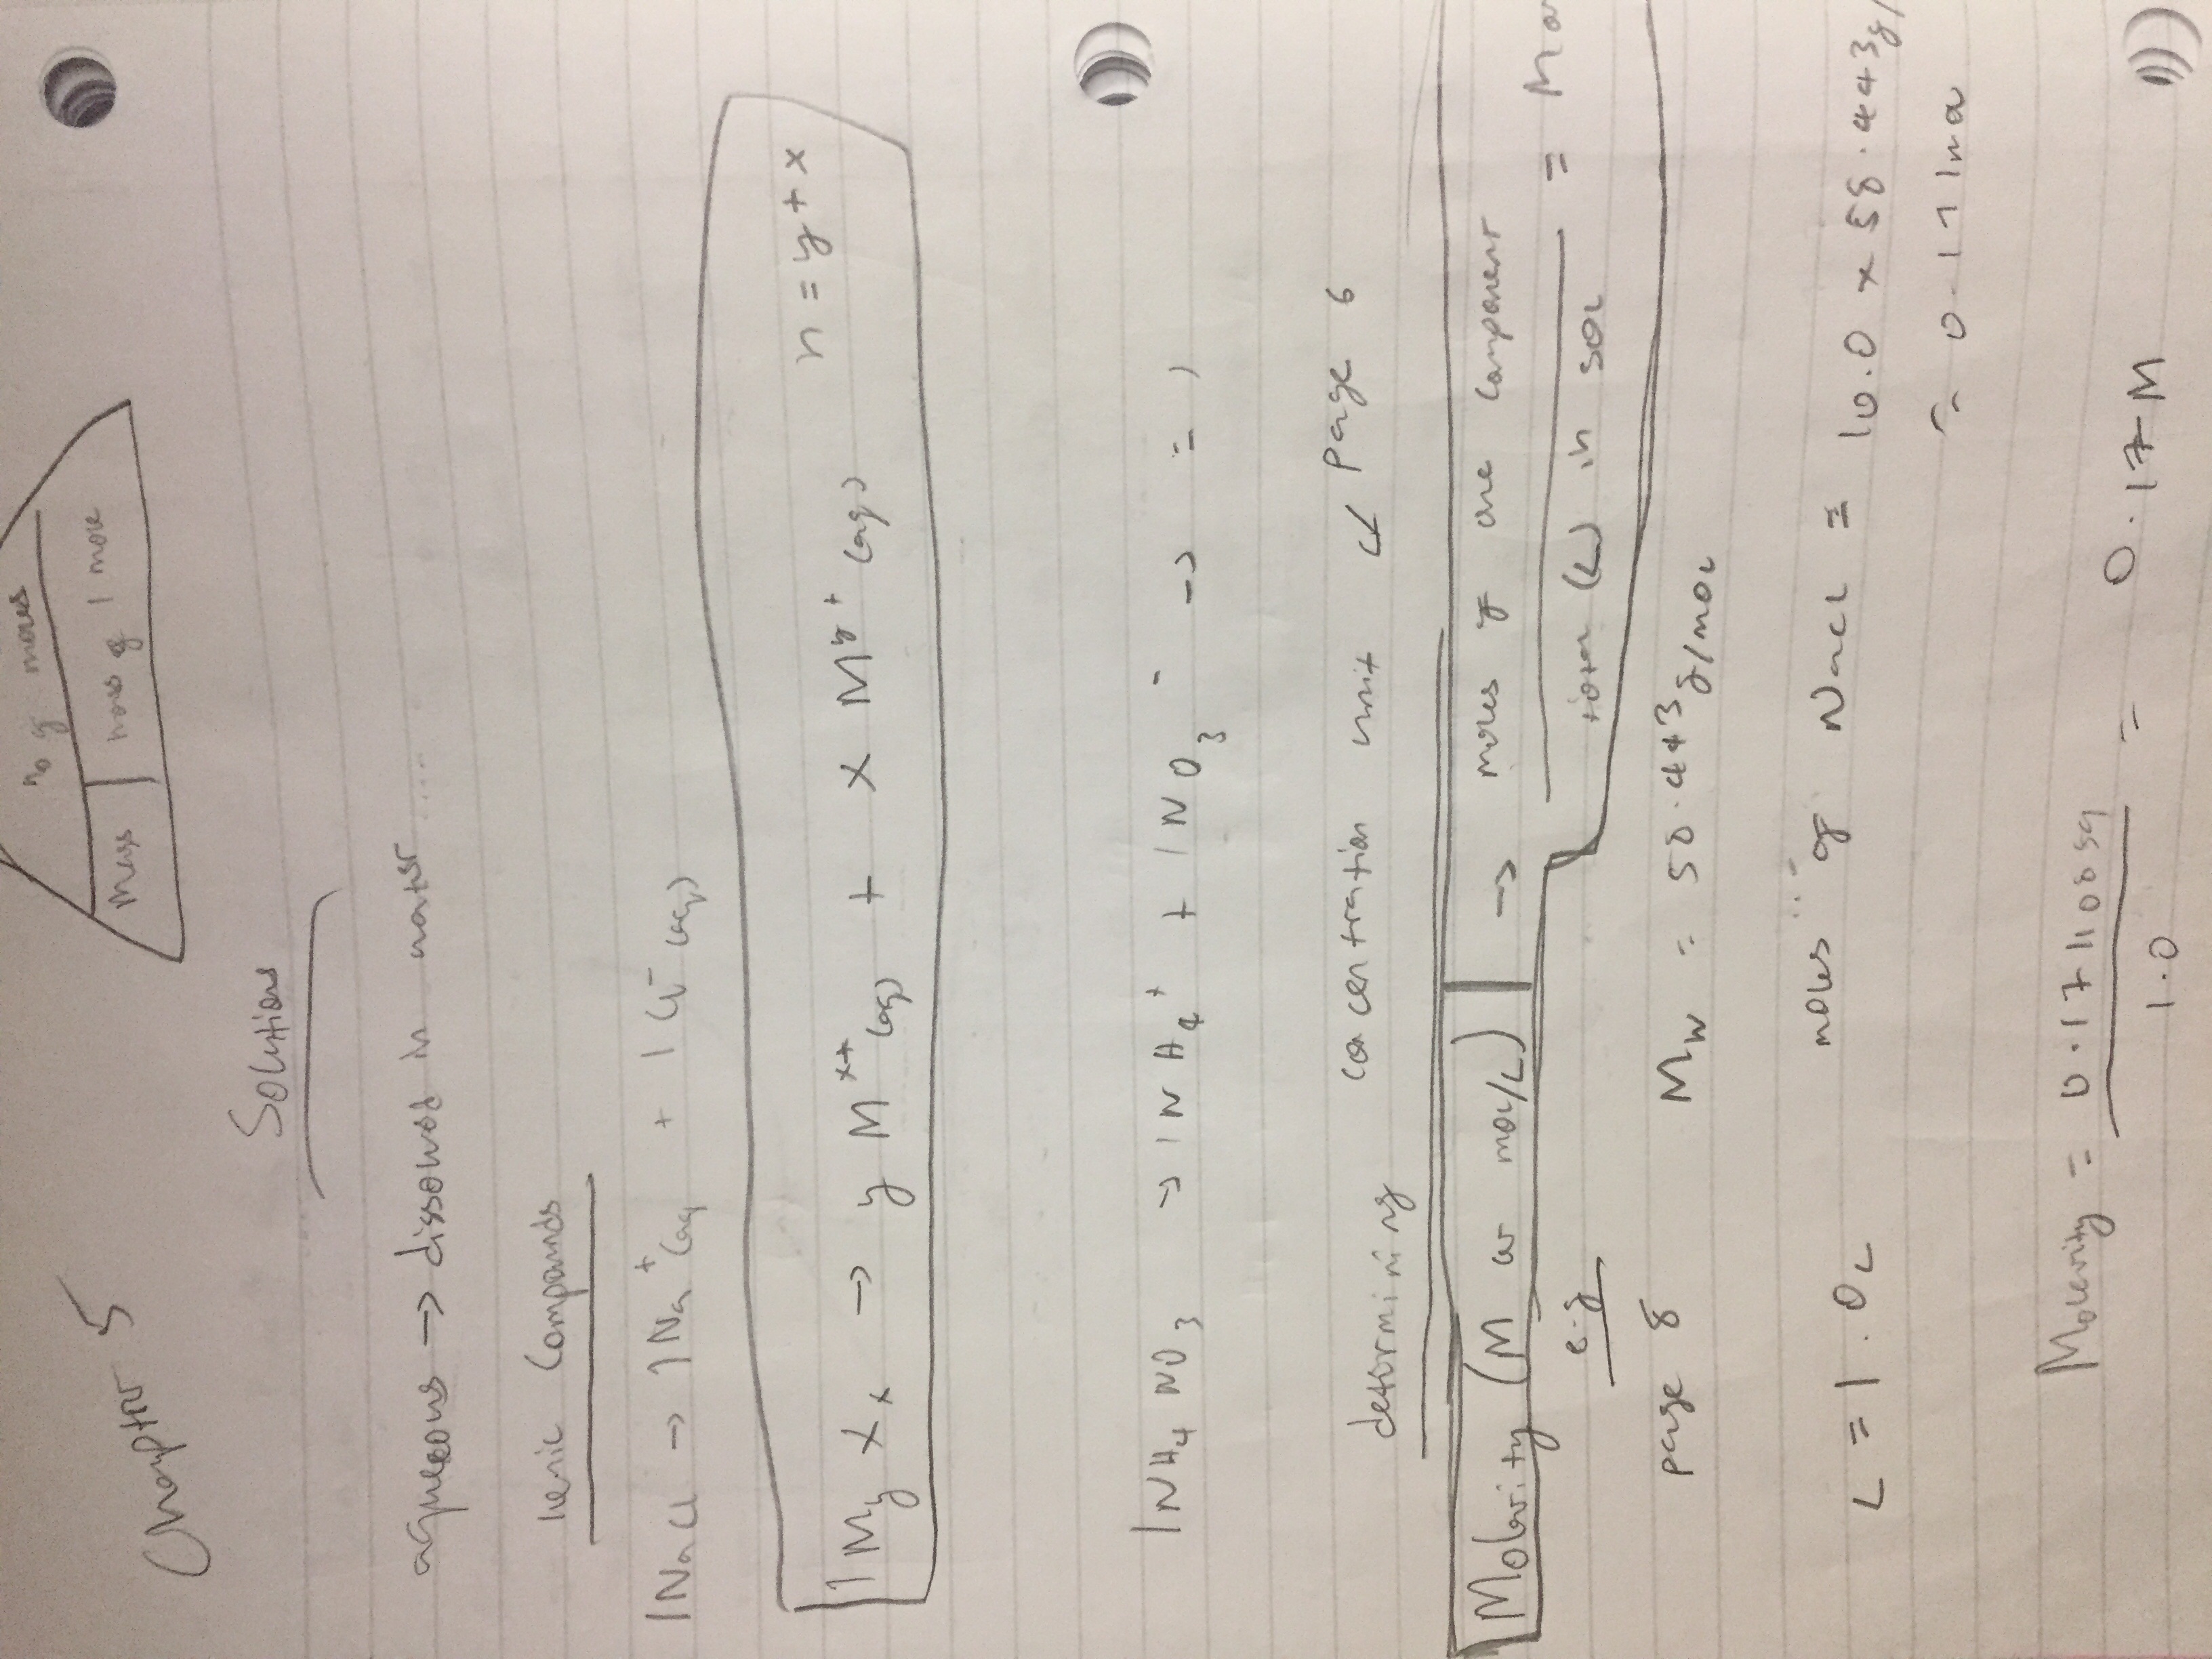 no of moles
Mass | mass of 1 mole
Chapter 5
Solutions
aqueous → dissolved in water ....
Ionic Compounds
1NaCl → 1Na⁺(aq + 1Cl⁻(aq)
1MyXx → yMˣ⁺(aq) + xMʸ⁺(aq) n = y + x
1NH₄NO₃ → 1NH₄⁺ + 1NO₃⁻ → = )
determining concentration unit Page 6
Molarity (M or mol/L) → moles of one component
total (L) in sol = Mo
e.g
page 8 Mw = 58.443g/mol
L = 1.0L moles of NaCl = 10.0 x 58.443g/
= 0.171
Molarity = 0.1711059 = 0.17M
1.0